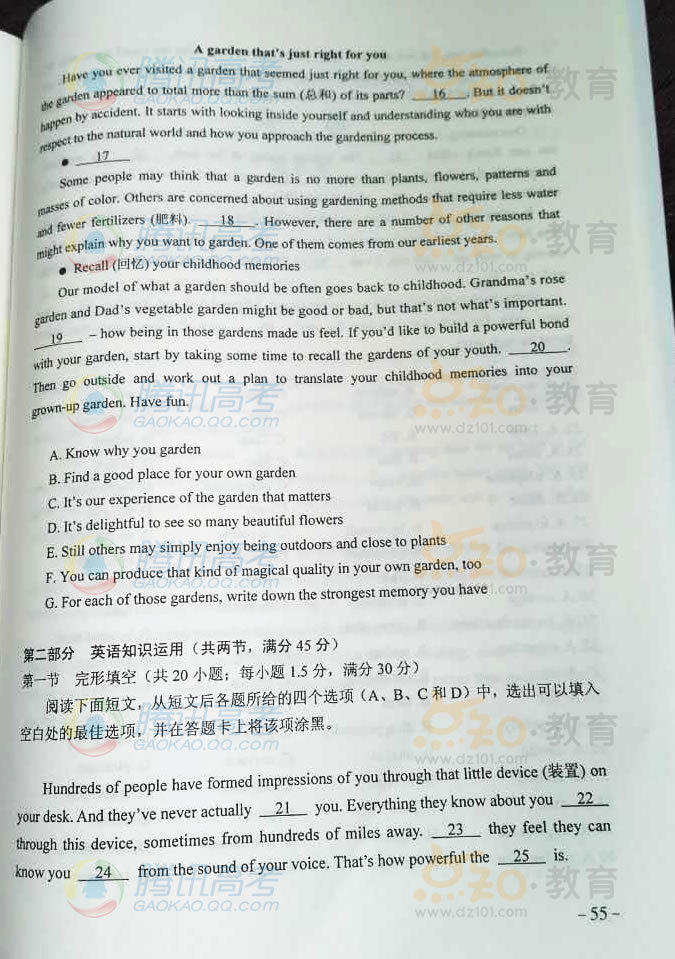 A garden that's just right for you
Have you ever visited a garden that seemed just right for you, where the atmosphere of
the garden appeared to total more than the sum (总和) of its parts? 16 . But it doesn't
happen by accident. It starts with looking inside yourself and understanding who you are with
respect to the natural world and how you approach the gardening process.
● 17
Some people may think that a garden is no more than plants, flowers, patterns and
masses of color. Others are concerned about using gardening methods that require less water
and fewer fertilizers (肥料). 18 . However, there are a number of other reasons that
might explain why you want to garden. One of them comes from our earliest years.
● Recall (回忆) your childhood memories
Our model of what a garden should be often goes back to childhood. Grandma's rose
garden and Dad's vegetable garden might be good or bad, but that's not what's important.
19 – how being in those gardens made us feel. If you'd like to build a powerful bond
with your garden, start by taking some time to recall the gardens of your youth. 20 .
Then go outside and work out a plan to translate your childhood memories into your
grown-up garden. Have fun.
A. Know why you garden
B. Find a good place for your own garden
C. It's our experience of the garden that matters
D. It's delightful to see so many beautiful flowers
E. Still others may simply enjoy being outdoors and close to plants
F. You can produce that kind of magical quality in your own garden, too
G. For each of those gardens, write down the strongest memory you have
第二部分 英语知识运用（共两节，满分 45 分）
第一节 完形填空（共 20 小题；每小题 1.5 分，满分 30 分）
阅读下面短文，从短文后各题所给的四个选项（A、B、C 和 D）中，选出可以填入
空白处的最佳选项，并在答题卡上将该项涂黑。
Hundreds of people have formed impressions of you through that little device (装置) on
your desk. And they've never actually 21 you. Everything they know about you 22
through this device, sometimes from hundreds of miles away. 23 they feel they can
know you 24 from the sound of your voice. That's how powerful the 25 is.
- 55 -
腾讯高考
GAOKAO.QQ.COM
点知·教育
www.dz101.com